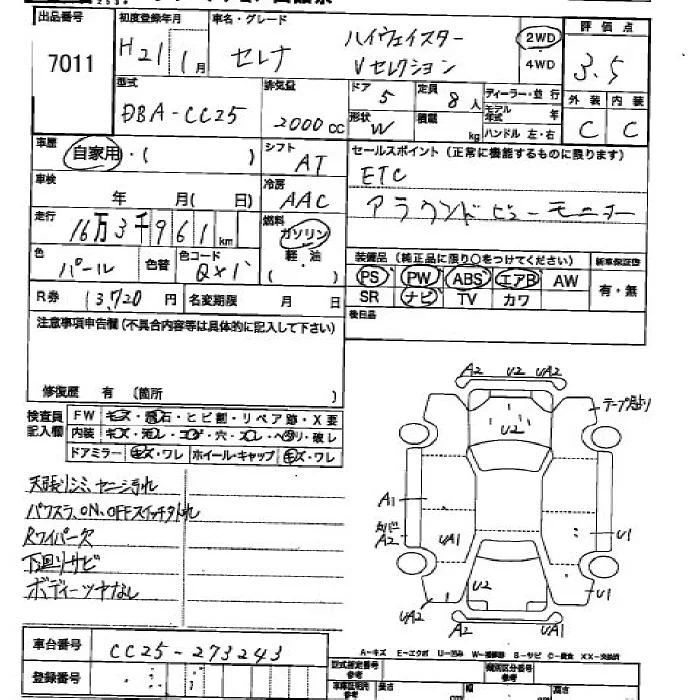 出品番号
7011
初度登録年月
H21 1月
車名・グレード
セレナ
ハイウェイスター
Vセレクション
2WD
4WD
評価点
3.5
型式
DBA-CC25
排気量
2000cc
ドア 5
定員 8人
形状 W
積載 kg
ディーラー・並行
モデル年式 年
ハンドル 左・右
外装 内装
C C
車歴
自家用・( )
シフト
AT
セールスポイント(正常に機能するものに限ります)
ETC
アラウンドビューモニター
車検
年 月(日)
冷房
AAC
走行
16万3千961km
燃料
ガソリン
軽・油
( )
色
パール
色替
色コード
QX1
装備品(純正品に限り○をつけてください)
PS PW ABS エアB AW
SR ナビ TV カワ
新車保証書
有・無
R券 13,720円
名変期限 月 日
後日品
注意事項申告欄(不具合内容等は具体的に記入して下さい)
修復歴 有 (箇所 )
検査員記入欄
FW キズ・飛石・ヒビ割・リペア跡・X要
内装 キズ・汚レ・コゲ・穴・スレ・ヘタリ・破レ
ドアミラー キズ・ワレ ホイール・キャップ キズ・ワレ
天張りシミ、ヤニ汚れ
パワスラ、ON、OFFスイッチ外れ
Rワイパー欠
下回りサビ
ボディーツヤなし
A2 U2 UA2
テープ貼り
U2
A1
カバー
A2
UA1
U1
U2
U1
UA2
A2
UA1
車台番号
CC25-273243
登録番号
A-キズ E-エクボ U-凹ミ W-補修跡 S-サビ C-腐食 XX-交換済
型式指定番号
参考
類別区分番号
参考
車庫証明用
参考
長さ
幅
高さ